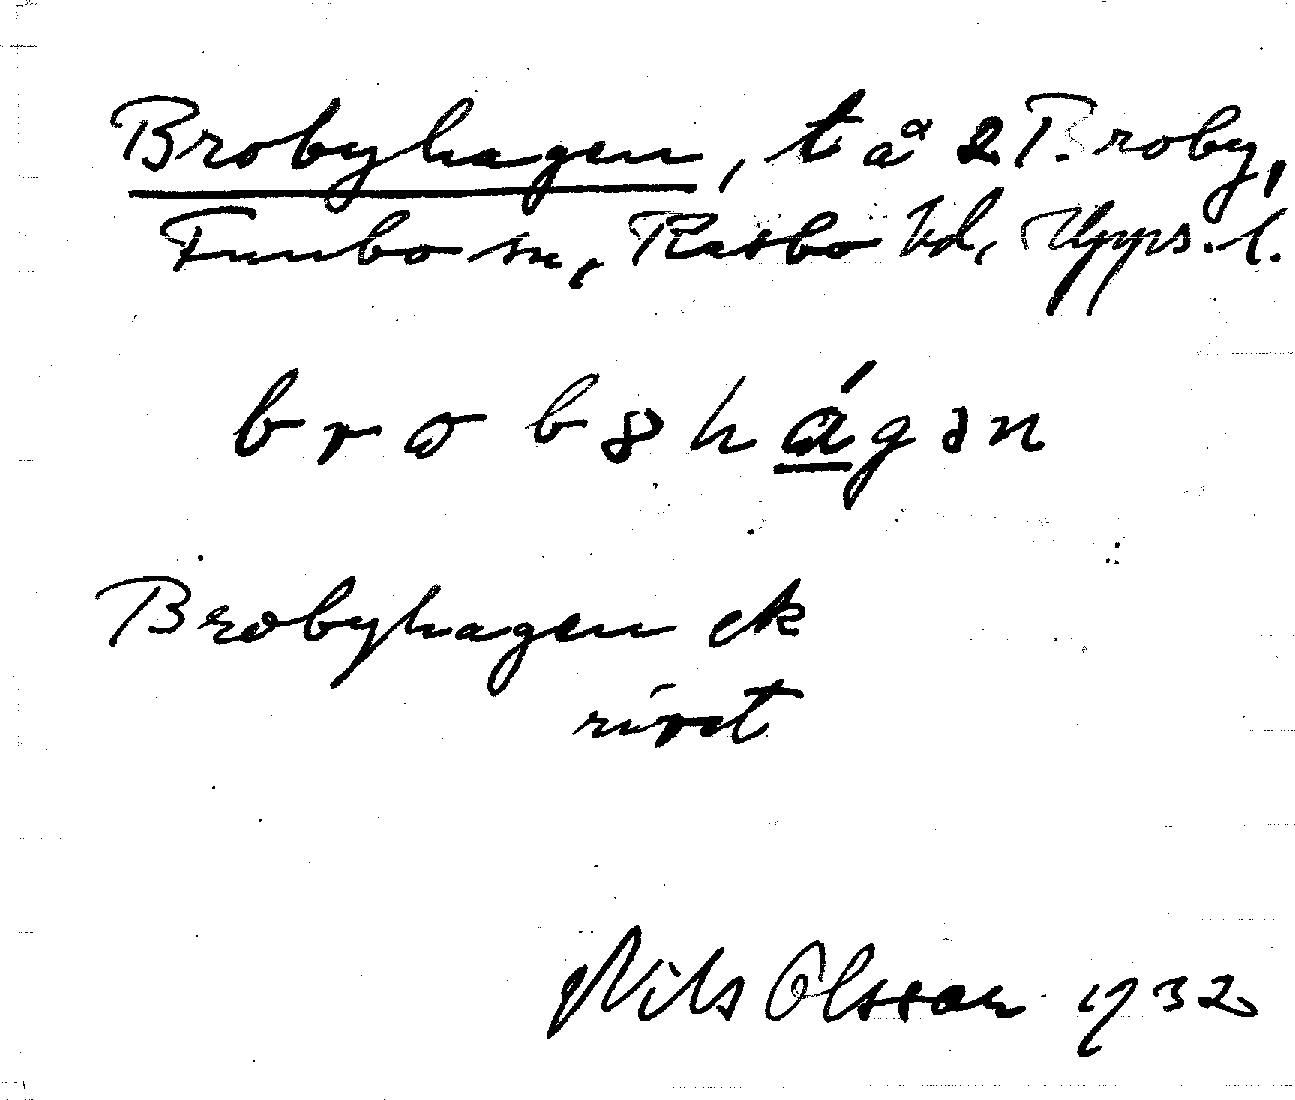 Brobyhagen, t å 2 Broby,
Funbo sn, Rasbo hd, Upps. l.
brobshágən
Brobyhagen ek
rivet
Nils Olsson 1932